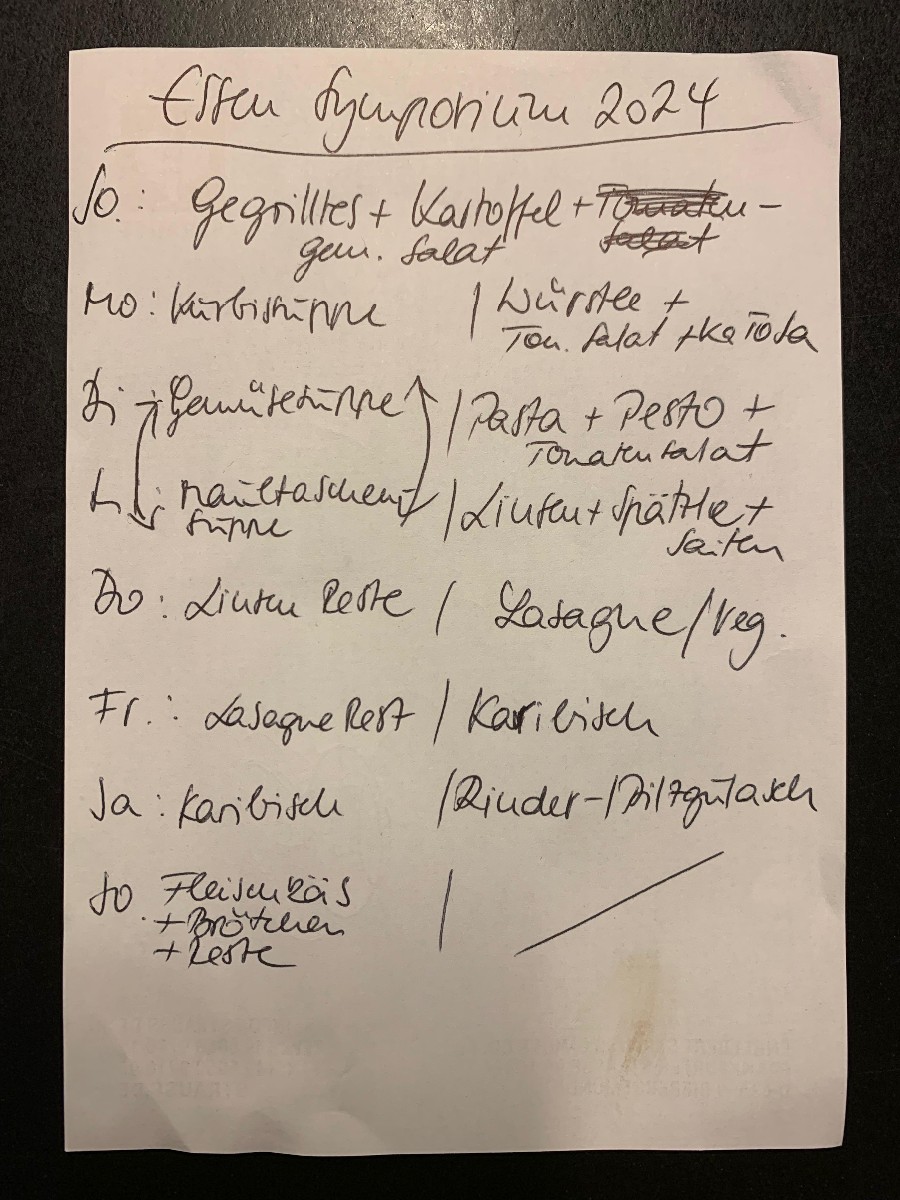 Essen Symposium 2024
So.: Gegrilltes + Kartoffel + Tomaten-
gem. Salat salat
Mo: Kürbissuppe / Würstle +
Tom. Salat + KaToSa
Di: Gemüsesuppe / Pasta + Pesto +
Tomatensalat
Maultaschen- / Linsen + Spätzle +
suppe Saiten
Do: Linsen Reste / Lasagne / Veg.
Fr.: Lasagne Rest / Karibisch
Sa: Karibisch / Rinder-/Pilzgulasch
So. Fleischkäs /
+ Brötchen
+ Reste